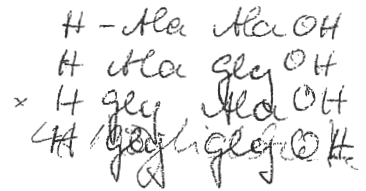 H - Ala Ala OH
H Ala gly OH
× H gly Ala OH
H gly gly OH